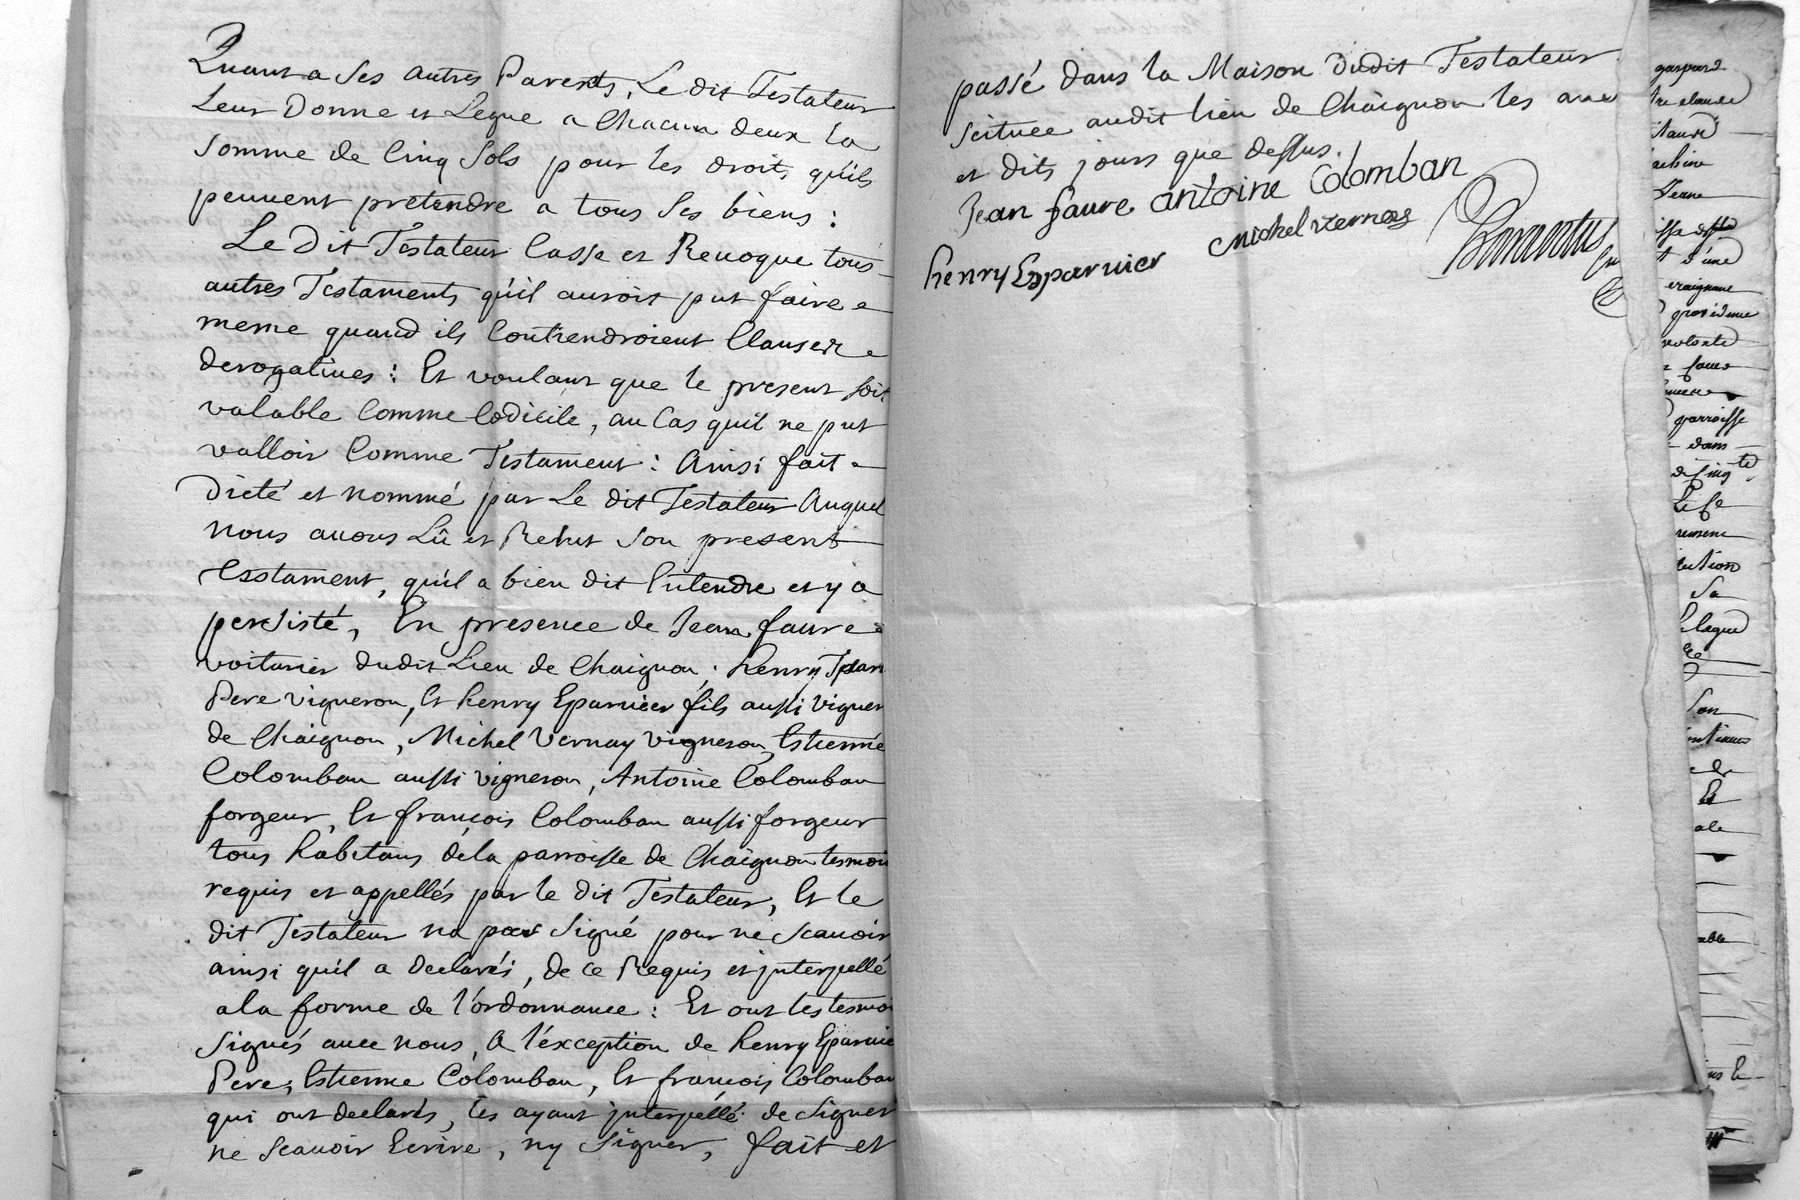 Quant a ses autres Parents, Le dit Testateur
Leur Donne et Legue a Chacun deux la
somme de Cinq Sols pour les droits qu'ils
peuuent pretendre a tous ses biens :
Le Dit Testateur Casse et Reuoque tous
autres Testaments qu'il auroit put faire
meme quand ils Contiendroient Clauses
derogatiues : Et voulant que le present soit
valable Comme Codicile, au Cas qu'il ne put
valloir Comme Testament : Ainsi fait
Dicté et nommé par Le dit Testateur Auquel
nous auons Lû et Relut son present
testament, qu'il a bien dit Entendre et y a
persisté, En presence de Jean faure
voiturier dudit Lieu de Chaignon, henry
Pere vigneron, Et henry Eparuier fils aussi vigner
de Chaignon, Michel Vernay vigneron, Estienne
Colomban aussi vigneron, Antoine Colomban
forgeur, Et françois Colomban aussi forgeur
tous habitans dela parroisse de Chaignon tesmoi
requis et appellés par le dit Testateur, Et le
dit Testateur na pas Signé pour ne Scauoir
ainsi qu'il a declarés, de ce Requis et jnterpellé
ala forme de l'ordonnance : Et ont les tesmoi
Signés auec nous, A l'éxception de henry Eparuie
Pere, Estienne Colomban, Et françois Colomban
qui ont declarés, les ayant jnterpellé de Signer
ne Scauoir Ecrire, ny Signer, fait et
passé dans la Maison dudit Testateur
scituée audit lieu de Chaignon les an
et dits jours que dessus.
Jean faure antoine Colomban
michel vernay
henry Esparuier
gaspard
claude
Jeanne
d'une
prouidence
volonté
parroisse
dans
Sa
Legue
Son
Et